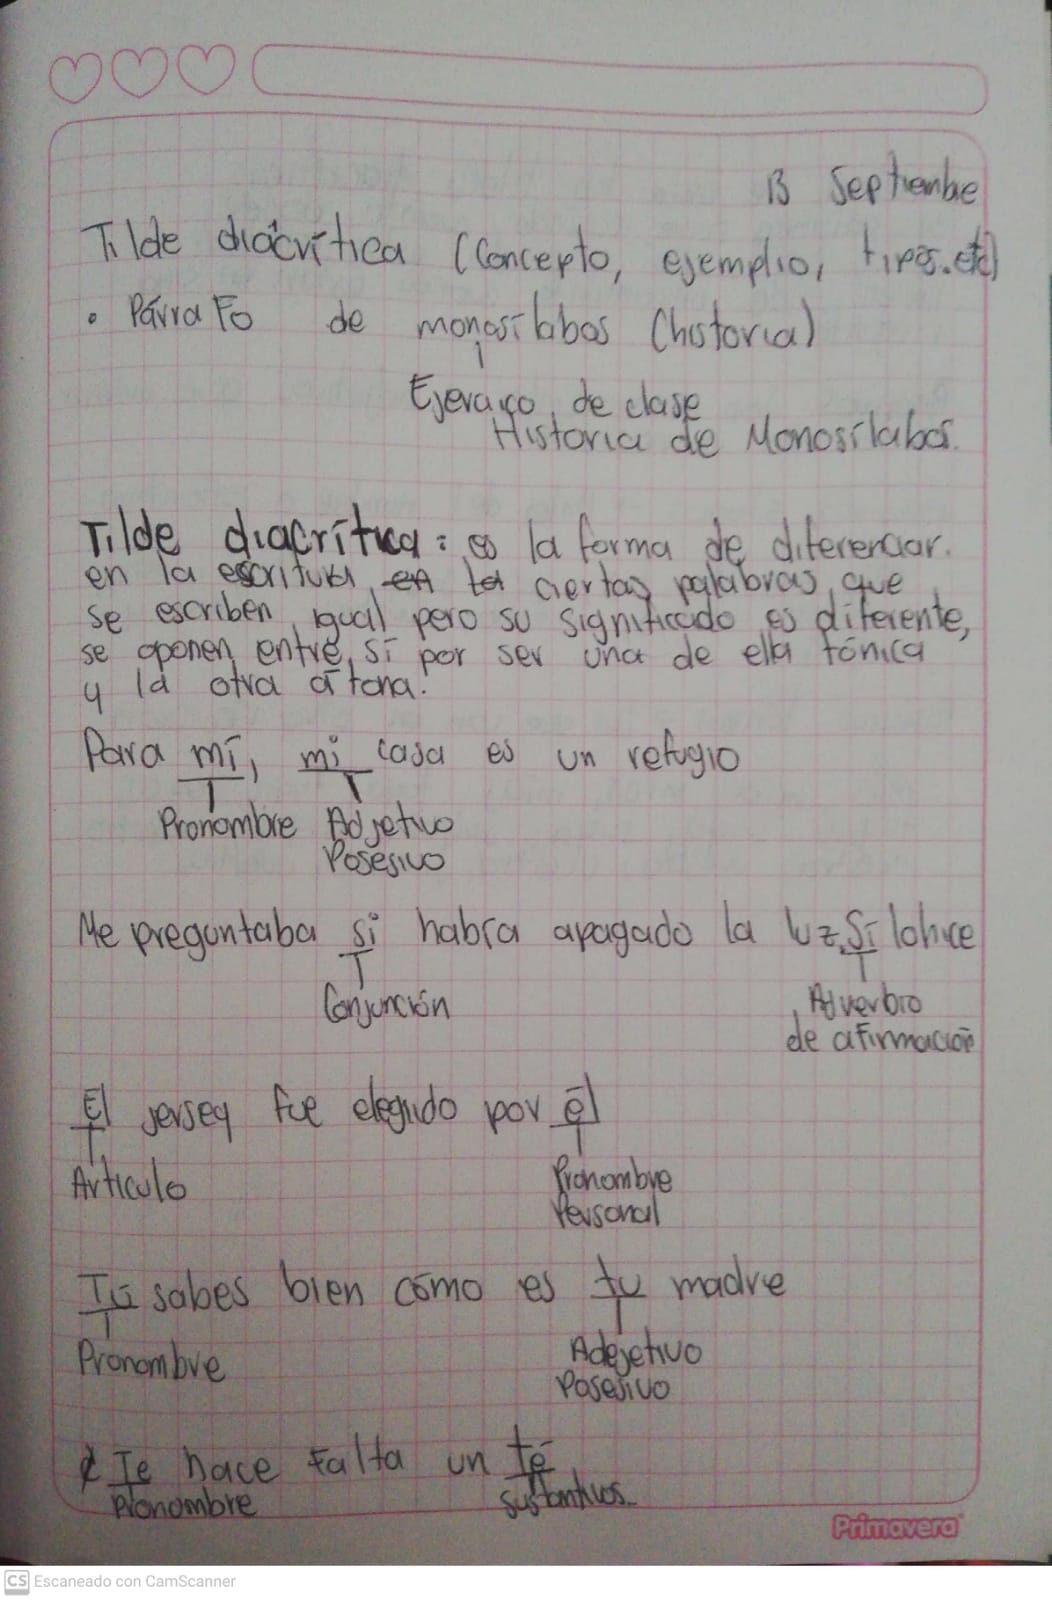 13 Septiembe
Tilde diácrítica (Concepto, ejemplio, tipos.etc)
• Párrafo de monosílabos (historia)
Ejercicio de clase
Historia de Monosílabos.
Tilde diacrítica: es la forma de diferenciar
en la escritura en la ciertas palabras que
se escriben igual pero su significado es diferente,
se oponen entre sí por ser una de ella tónica
y la otra átona.
Para mí, mi casa es un refugio
Pronombre Adjetivo
Posesivo
Me preguntaba si habría apagado la luz. Sí lo hice
Conjunción Adverbio
de afirmación
El jersey fue elegido por él
Artículo Pronombre
Personal
Tú sabes bien cómo es tu madre
Pronombre Adejetivo
Posesivo
Te hace falta un té
Pronombre sustantivos
Primavera
CS Escaneado con CamScanner